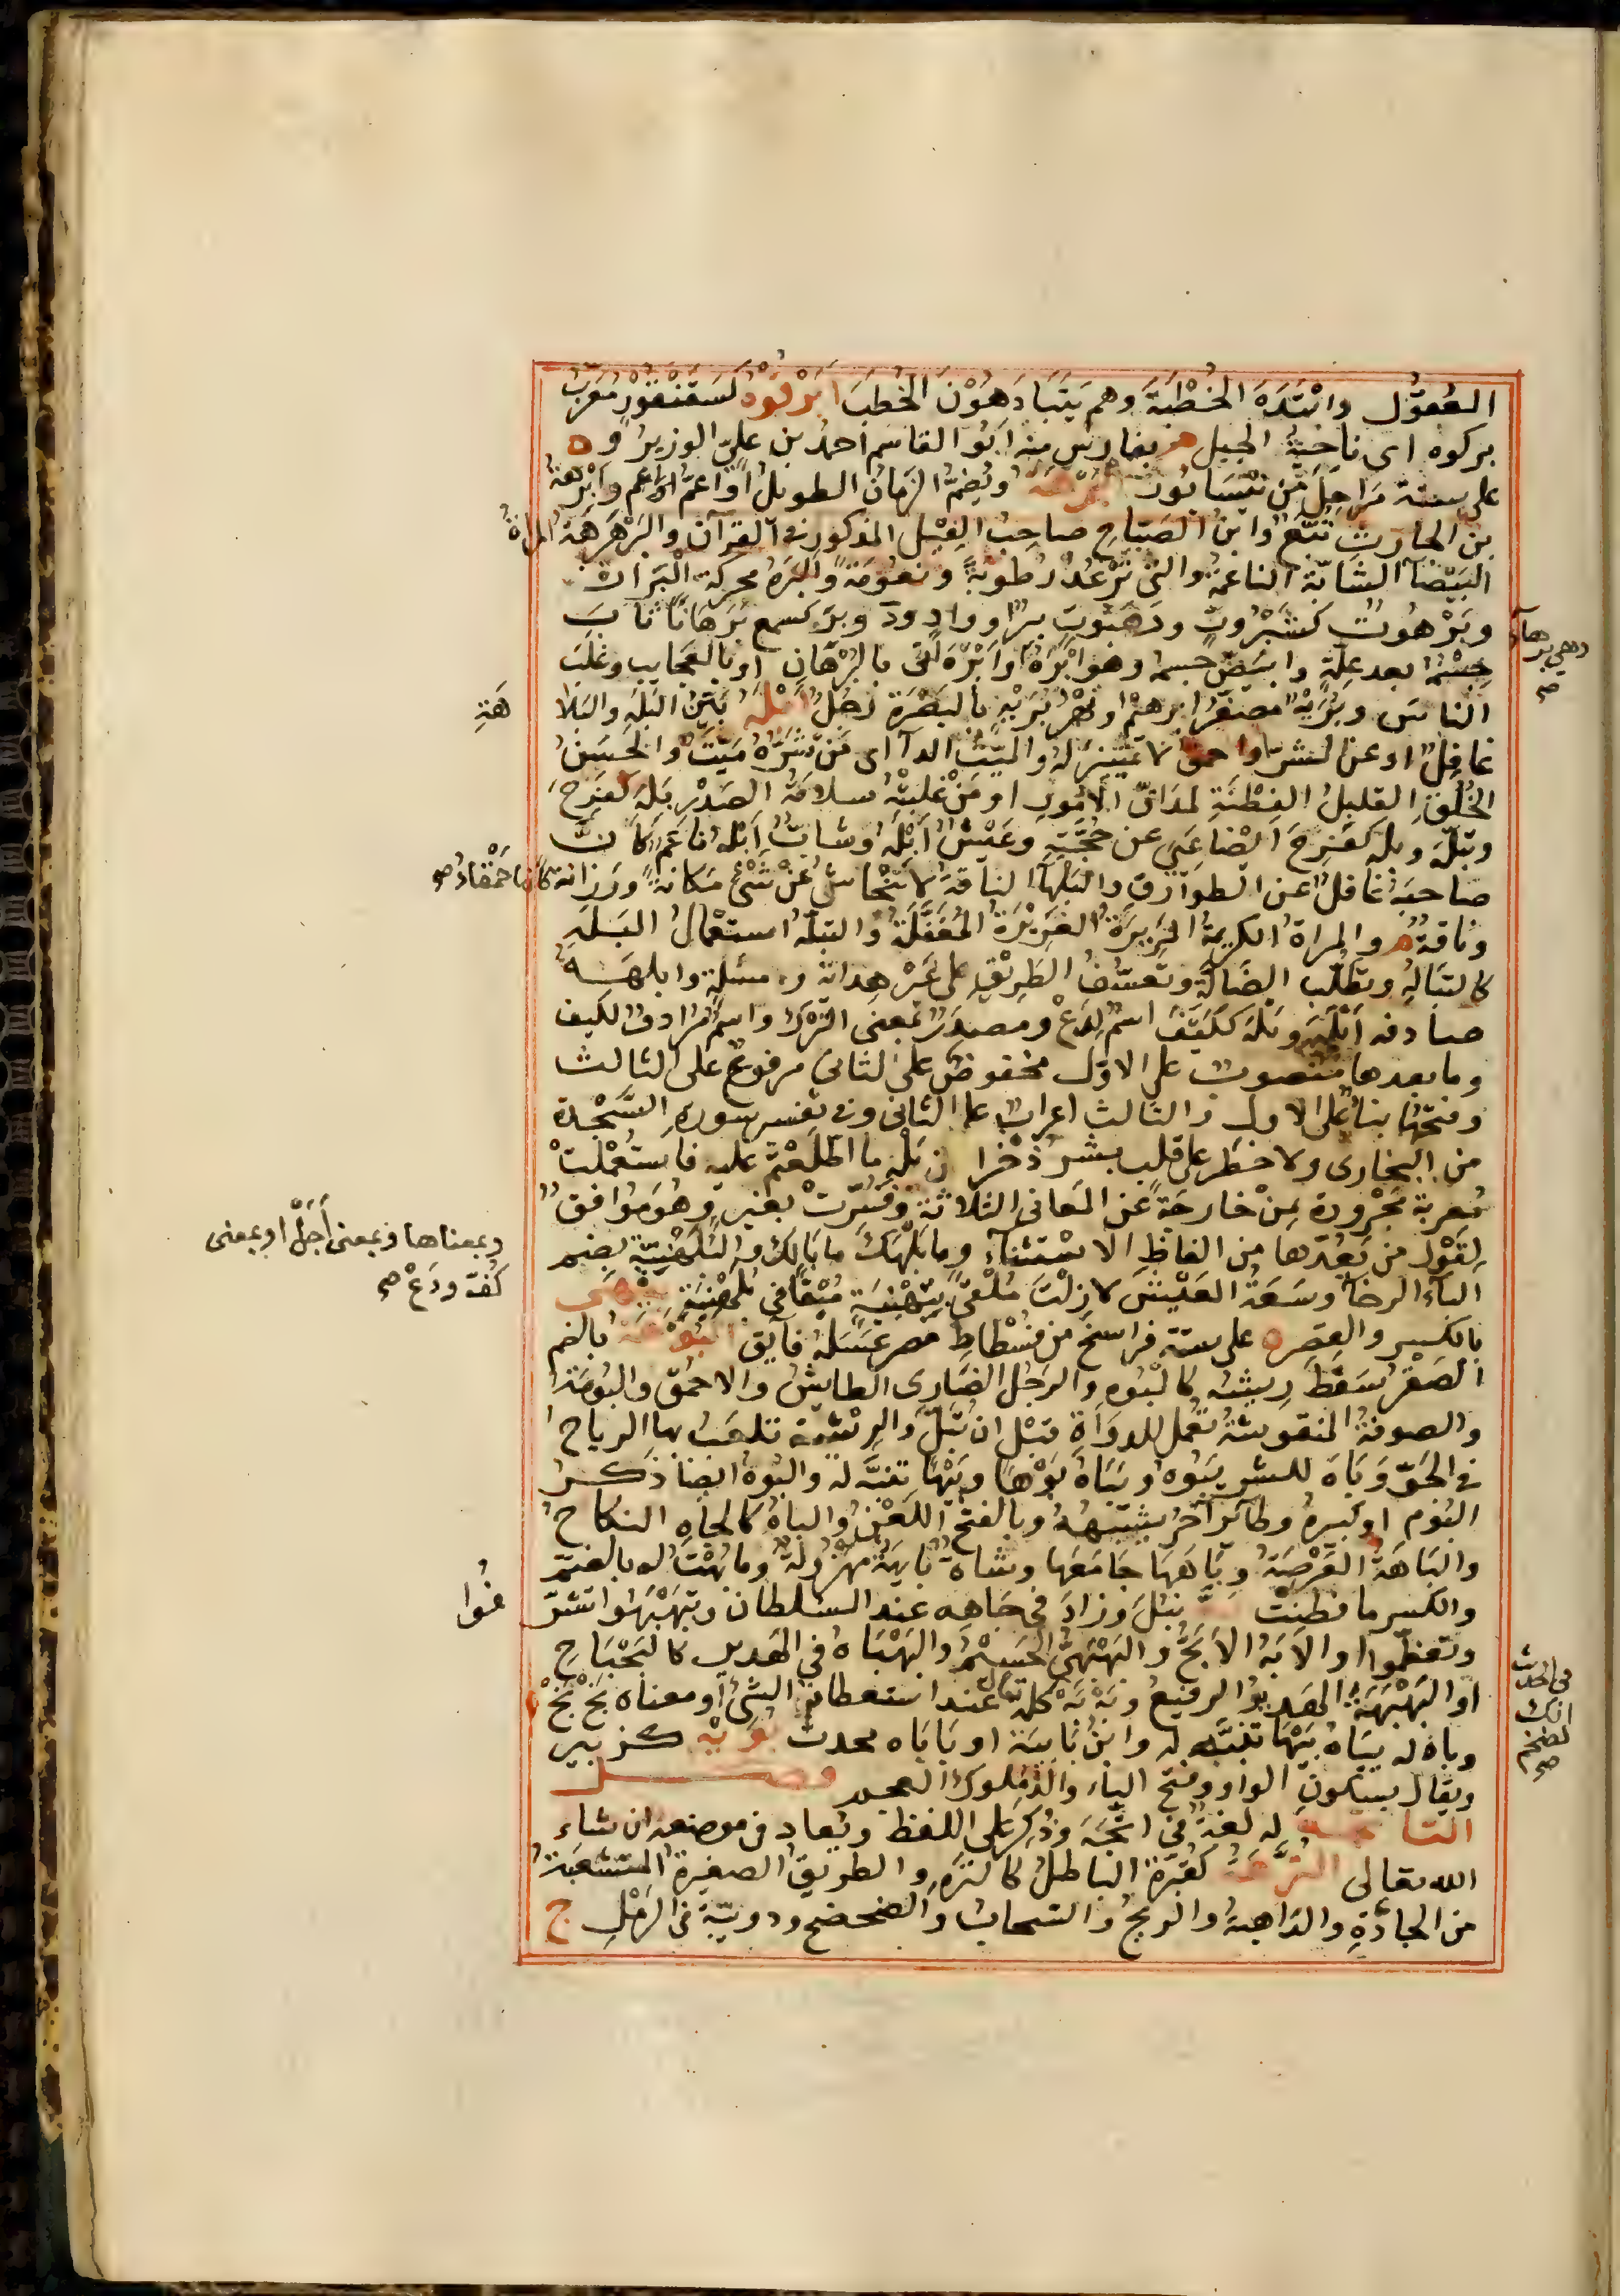 العُقول وابْتَدَهَ الخُطْبَةَ وهم يَتَبادَهُوْنَ الخُطَبَ أبَرْقُوهُ كسَقَنْقُوْرٍ مُعَرَّبُ
بركوه اى ناحِيَةُ الجبل ه بفارس منه ابُو القاسم احمدُ بن علىّ الوزيرُ و ه
على ستة مَرَاحِلَ مِن نَيْسَابُور البُرْهَةُ ويُضَمُّ الزمانُ الطويلُ او اعمُّ وأبْرَهةُ
بن الحارث تُبَّعٌ وابنُ الصَبّاحِ صاحِبُ الفِيْلِ المذكورِ فى القرآن والبَرَهْرَهَةُ المراةُ
البَيْضَآءُ الشَابّة الناعمةُ والتى تُرْعَدُ رُطُوبَةً ونُعُومَةً والبَرَهُ محركة البَرَارة
وبَرَهُوتُ كسَبَرُوتٍ وصَعْفُوقٍ بِئرٌ او وادٍ او د وبَرِهَ كسمع بَرَهَانًا ثابَ
جِسْمُهُ بعد عِلّةٍ وابيَضَّ جسمه وهو أبْرَهُ وأبْرَهَ أتَى بالبُرْهَانِ او بالعَجايب وغَلَبَ
الناسَ وبُرَيْهٌ مُصَغّرُ ابرهيم ونَهْرُ بُرَيْهٍ بالبَصْرَةِ رَجُلٌ أبْلَهُ بَيِّنُ البَلَهِ والبَلَا
هَةِ
غافِلٌ او عن الشرّ او احمقُ لا تمييزَ له والميّتُ الدآء اى مَنْ شَرُّهُ مَيِّتٌ والحَسَنُ
الخُلُقِ القليلُ الفِطْنَةِ لمَدَاقِّ الامُورِ او مَنْ غَلَبَتْهُ سلامَةُ الصَدْرِ بَلِهَ كفَرِحَ
وتَبَلَّهَ وبَلِهَ كفَرِحَ ايضا عَيِىَ عن حُجَّتِهِ وعَيْشٌ أبْلَهُ وشَابٌّ أبْلَهُ ناعِمٌ كأنَّ
صاحبَهُ غافلٌ عن الطوارق والبَلْهَآءُ الناقةُ لا تَنْحاشُ عنْ شَىْءٍ مَكانَةً ورَزانةً كانها حَمْقاءُ صح
وناقةٌ م والمراة الكريمةُ المَزِيرَةُ الغَرِيْرَةُ المُغَفَّلَةُ والتبلّهُ استعْمالُ البَلَهِ
كالتَبَالُهِ وتَطَلُّبُ الضَالّةِ وتَعَسُّفُ الطَرِيْقِ على غَيْرِ هِدايَةٍ ومسئلةٍ وابلَهَهُ
صادفه أبْلَهَ وبَلْهَ ككَيْفَ اسمٌ لِدَعْ ومصدَرٌ بمعنى التَرْك واسمٌ مُرادفٌ لكيف
وما بعدها منصوبٌ على الاوّل مخفوضٌ على الثانى مرفوعٌ على الثالث
وفتحُها بناءٌ على الاول والثالث اعرابٌ على الثانى وفى تفسير سورة السَّجْدة
من البخارى ولا خطَرَ على قلب بشر ذُخْرًا من بَلْهِ ما اطّلَعْتُم عليه فاستُعْملتْ
مُعربةً مَجْرورةً بِمِنْ خارجَةً عن المَعانى الثلاثة وفُسِّرَتْ بغيرٍ وهُوَ مُوافقٌ
لِقَوْلِ من يَعُدّها من الفاظِ الاسْتثنآء وما بَلْهُكَ ما بَالُكَ والبُلَهْنِيَةُ بضم
البآءِ الرخآءُ وسَعَةُ العَيْشِ لا زِلْتَ مُلَقًّى بتَهْنِيَةٍ مُبْقًى فى بُلَهْنِيَةٍ بِنْهَى
بالكسر والقصر ه على ستة فراسخَ من فُسْطاطِ مصر عَسَلُهُ فآيق البُوهَةُ بالضم
الصَقْرُ سَقَطَ رِيشُه كالبُوهِ والرَجُلُ الضَارِى الطايِشُ والاحمقُ والبُومَةُ
والصوفةُ المنفوشةُ تُعْمَلُ للدوَاةِ قبْلَ ان تُبَلَّ والرِيْشة تلعَبُ بها الرياحُ
فى الجَوِّ وبَاهَ للشىء يَبُوهُ ويَبَاهُ بَوْهًا وبَيْهًا تَنَبَّهَ له والبُوهُ ايضًا ذكرُ
البُوم او كبيرُهُ وطائرٌ آخَرُ يشبهُهُ وبالفتح اللَعْنُ والباهُ كالجاهِ النكاحُ
والبَاهَةُ العَرْصَةُ وبَاهَهَا جَامَعَها وشاةٌ بَايِهَةٌ مَهْزُولةٌ وما بُهْتُ له بالضمّ
والكسر ما فطِنْتُ بَهَّ نَبُلَ وزادَ فى جَاهِه عند السلطان وتَبَهْبَهُوا تشرّ
فُوا
وتعَظّموا والابَهُّ الابَحُّ والبَهْبَهِىُّ الجَسِيْمُ والبَهْبَاهُ فى الهَدِير كالبَخْبَاخِ
او البَهْبَهَةُ الهَدِيْرُ الرفيعُ وبَهْ بَهْ كلمةٌ تقال عند استعظام الشىءِ او معناه بَخْ بَخْ
وباهَ له يَبَاهُ بَيْهًا تَنَبَّه له وابْنُ بَابِيَه او بَابَاه محدث بُوَيْه كزبير
ويقال بسكونِ الواو وفتح الياء والدُ مُلوك العجم فصل
التا تجه له لغةٌ فى اتَّجَهَ وذُكِرَ على اللفظ ويُعاد فى موضعه ان شاء
الله تعالى التُرَّهَةُ كقُبَّرَة الباطلُ كالتُرَّهِ والطريقُ الصغيرةُ المتشعبةُ
من الجادّةِ والدَاهِيةُ والريحُ والسحابُ والصَّحْصَحُ ودويبّةٌ فى الرمْلِ ج
وبمعناها وبمعنى أجَلْ او بمعنى
كُفّ ودَعْ صح
فى الحديث
انك
لضخم
صح